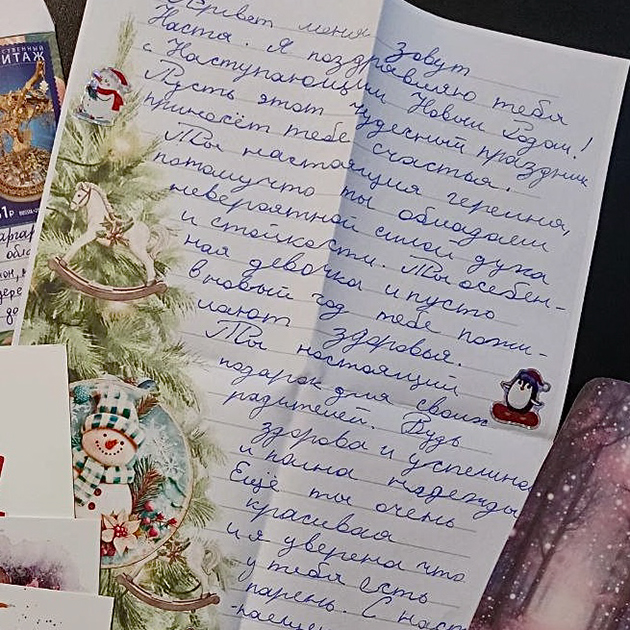 СТВЕННЫЙ
ИТАЖ
1₽
Привет меня зовут
Настя. Я поздравляю тебя
с Наступающим Новым Годом!
Пусть этот чудесный праздник
принесёт тебе счастья.
Ты настоящия героиня,
потомучто ты обладаеш
невероятной силой духа
и стойкости. Ты особен-
ная девочка и пусто
в новый год тебе пожи-
лают здоровья.
Ты настоящий
подарок для своих
родителей. Будь
здорова и успешна
и полна надежды
Ещё ты очень
красивая
и я уверена что
у тебя есть
парень. С наст